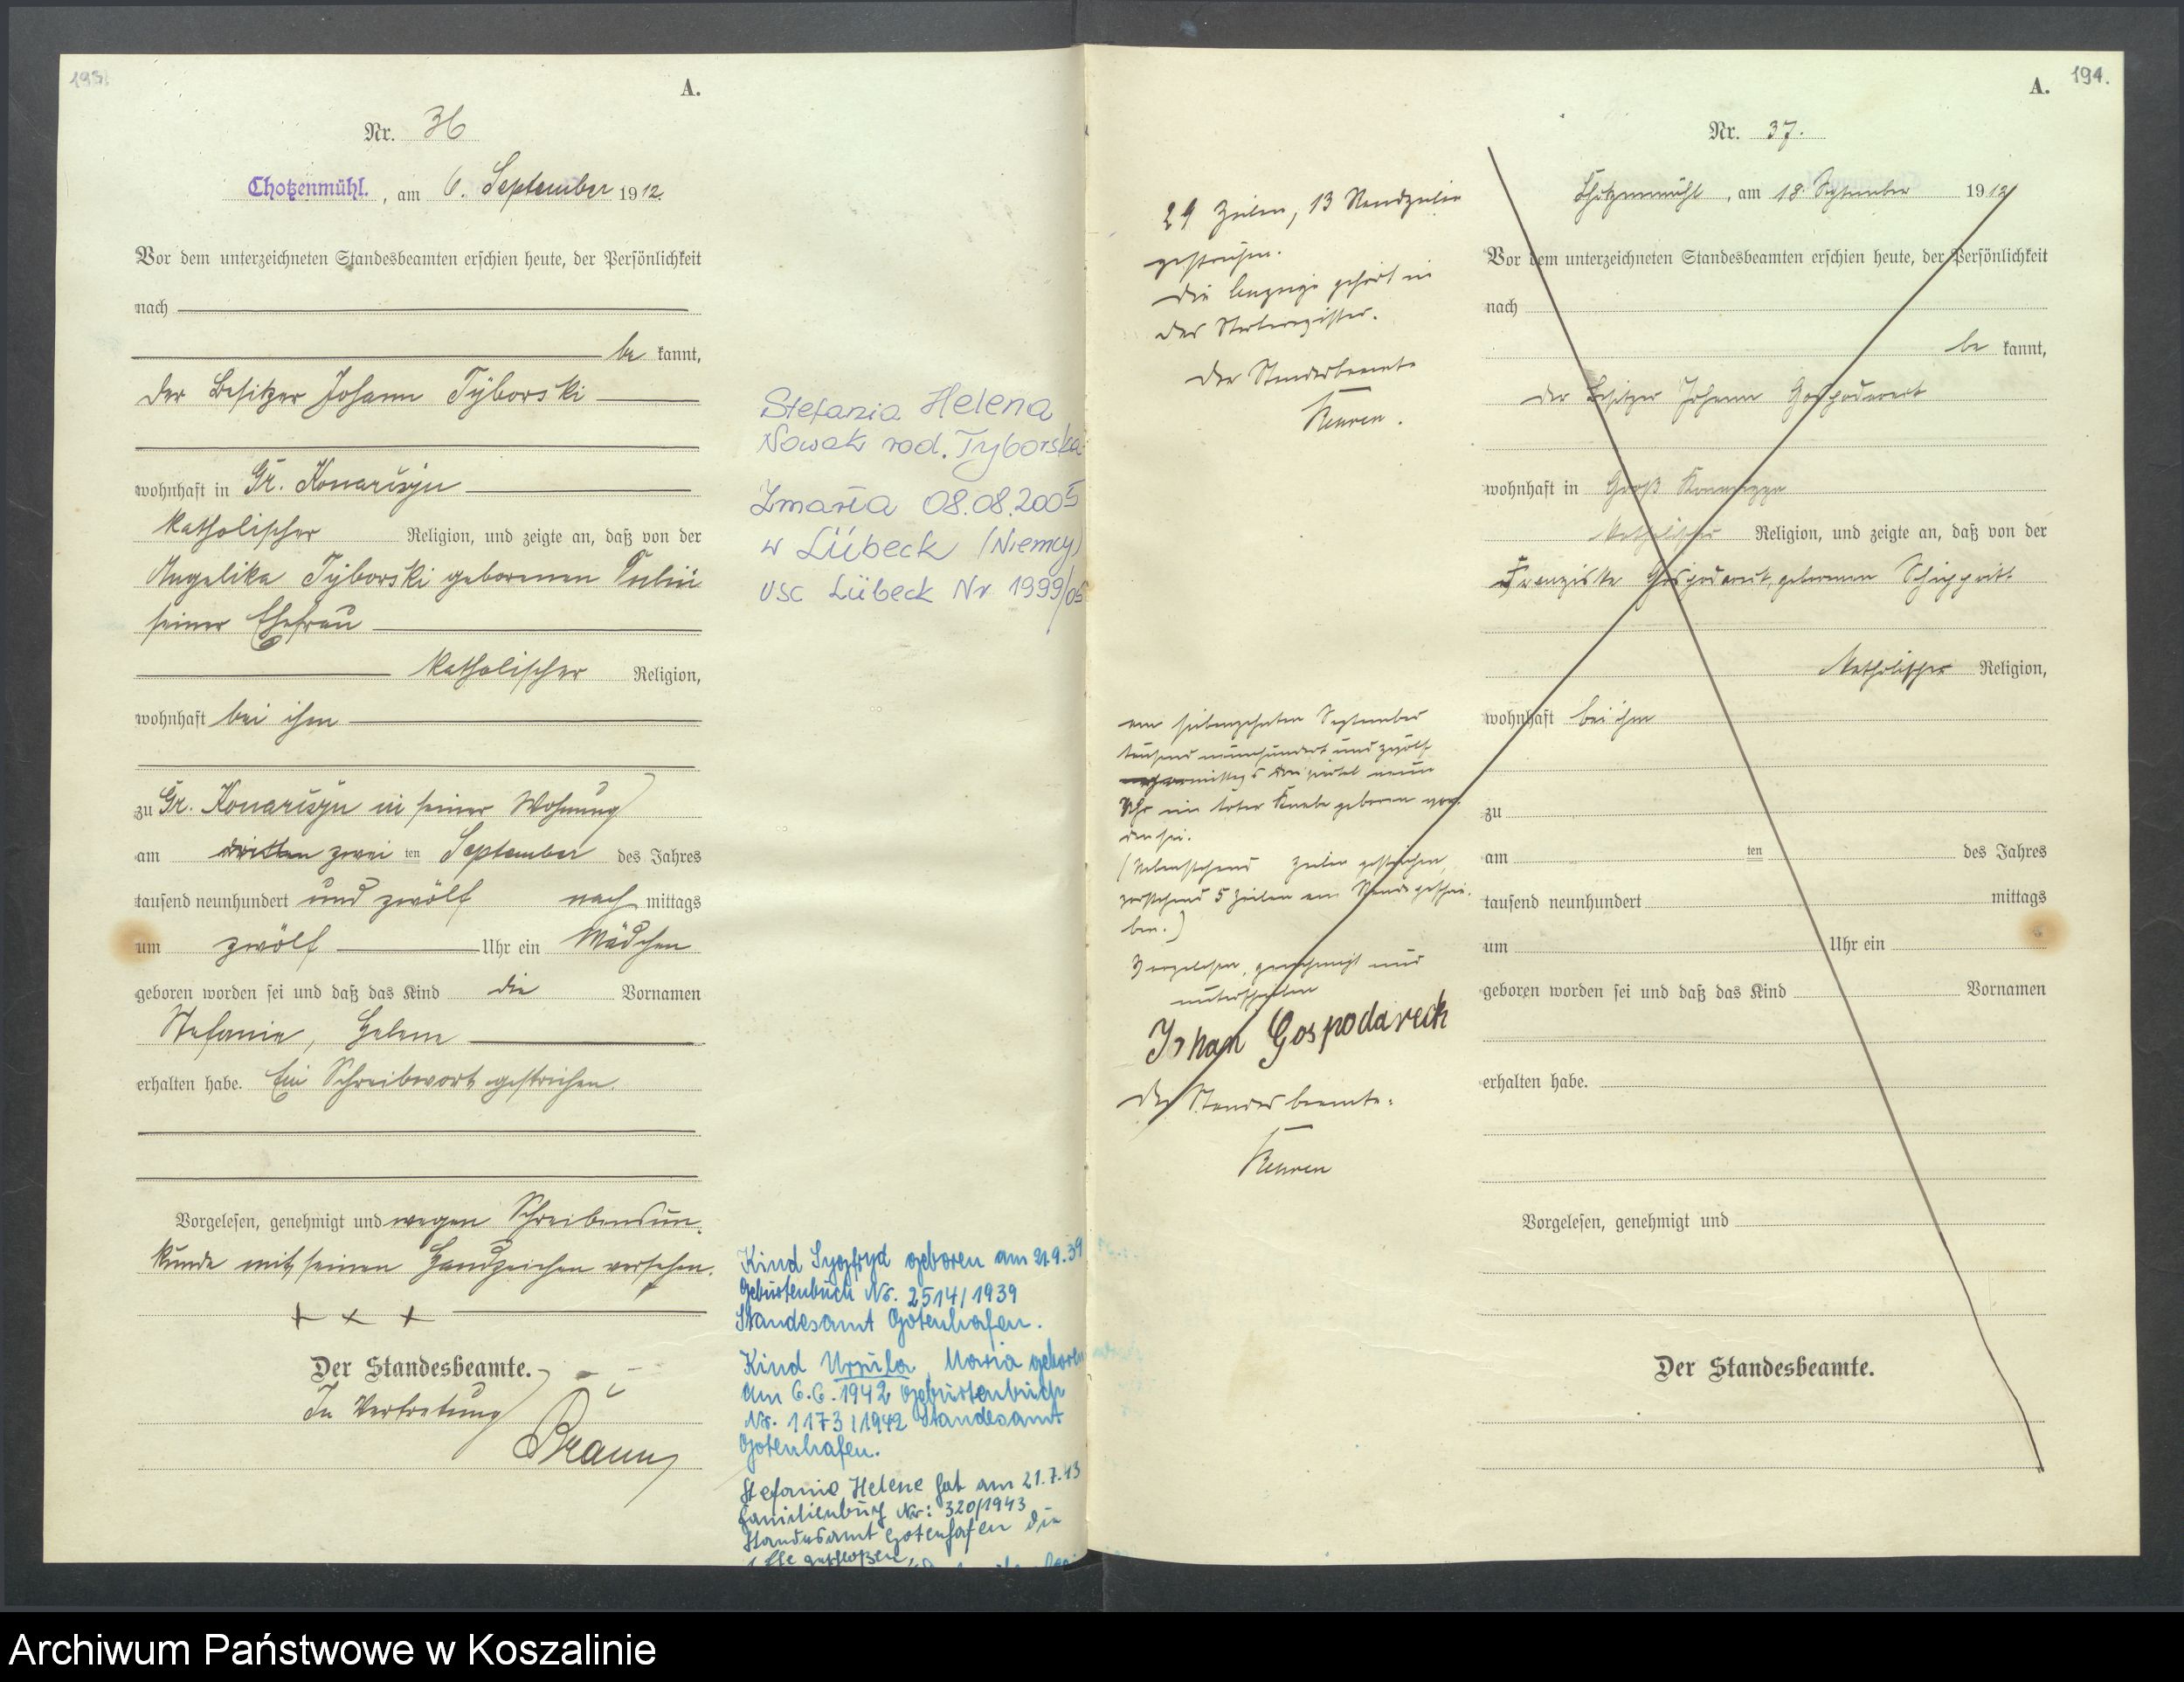 193.
A.
Nr. 36
Chotzenmühl. , am 6. September 1912.
Vor dem unterzeichneten Standesbeamten erschien heute, der Persönlichkeit
nach
be kannt,
der Besitzer Johann Tÿborski
wohnhaft in Gr. Konarczyn
katholischer Religion, und zeigte an, daß von der
Angelika Tÿborski geborenen
seiner Ehefrau
katholischer Religion,
wohnhaft bei ihm
zu Gr. Konarczyn in seiner Wohnung
am dritten zwei ten September des Jahres
tausend neunhundert und zwölf nach mittags
um zwölf Uhr ein Mädchen
geboren worden sei und daß das Kind die Vornamen
Stefanie, Helene
erhalten habe. Ein Schreibwort gestrichen
Vorgelesen, genehmigt und wegen Schreibensun-
kunde mit seinen Handzeichen versehen.
+ × +
Der Standesbeamte.
In Vertretung
Braun
Stefania Helena
Nowak rod. Tyborska
Zmarła 08.08.2005
w Lübeck (Niemcy)
USC Lübeck Nr 1999/05
Kind Sygfryd geboren am 21.9.39
Geburtenbuch Nr. 2514/1939
Standesamt Gotenhafen.
Kind Ursula, Maria geboren
am 6.6.1942 Geburtenbuch
Nr. 1173/1942 Standesamt
Gotenhafen.
Stefanie Helene hat am 21.7.43
Familienbuch Nr: 320/1943
Standesamt Gotenhafen die
Ehe geschloßen,
A. 194.
Nr. 37.
Chotzenmühl , am 18. September 1912
Vor dem unterzeichneten Standesbeamten erschien heute, der Persönlichkeit
nach
be kannt,
der Besitzer Johann Gospodareck
wohnhaft in Groß Konarczyn
katholischer Religion, und zeigte an, daß von der
Franziska Gospodareck, geborenen
katholischer Religion,
wohnhaft bei ihm
zu
am ten des Jahres
tausend neunhundert mittags
um Uhr ein
geboren worden sei und daß das Kind Vornamen
erhalten habe.
Vorgelesen, genehmigt und
Der Standesbeamte.
29 Zeilen, 13 Randzeilen
gestrichen.
Die Anzeige gehört in
das Sterberegister.
Der Standesbeamte
am siebenzehnten September
tausend neunhundert und zwölf
vormittags drei viertel neun
Uhr ein toter Knabe geboren wor-
den sei.
(Nebenstehend Zeilen gestrichen,
vorstehend 5 Zeilen am Rande geschrie-
ben.)
Vorgelesen, genehmigt und
unterschrieben
Johan Gospodareck
Der Standesbeamte.
Archiwum Państwowe w Koszalinie